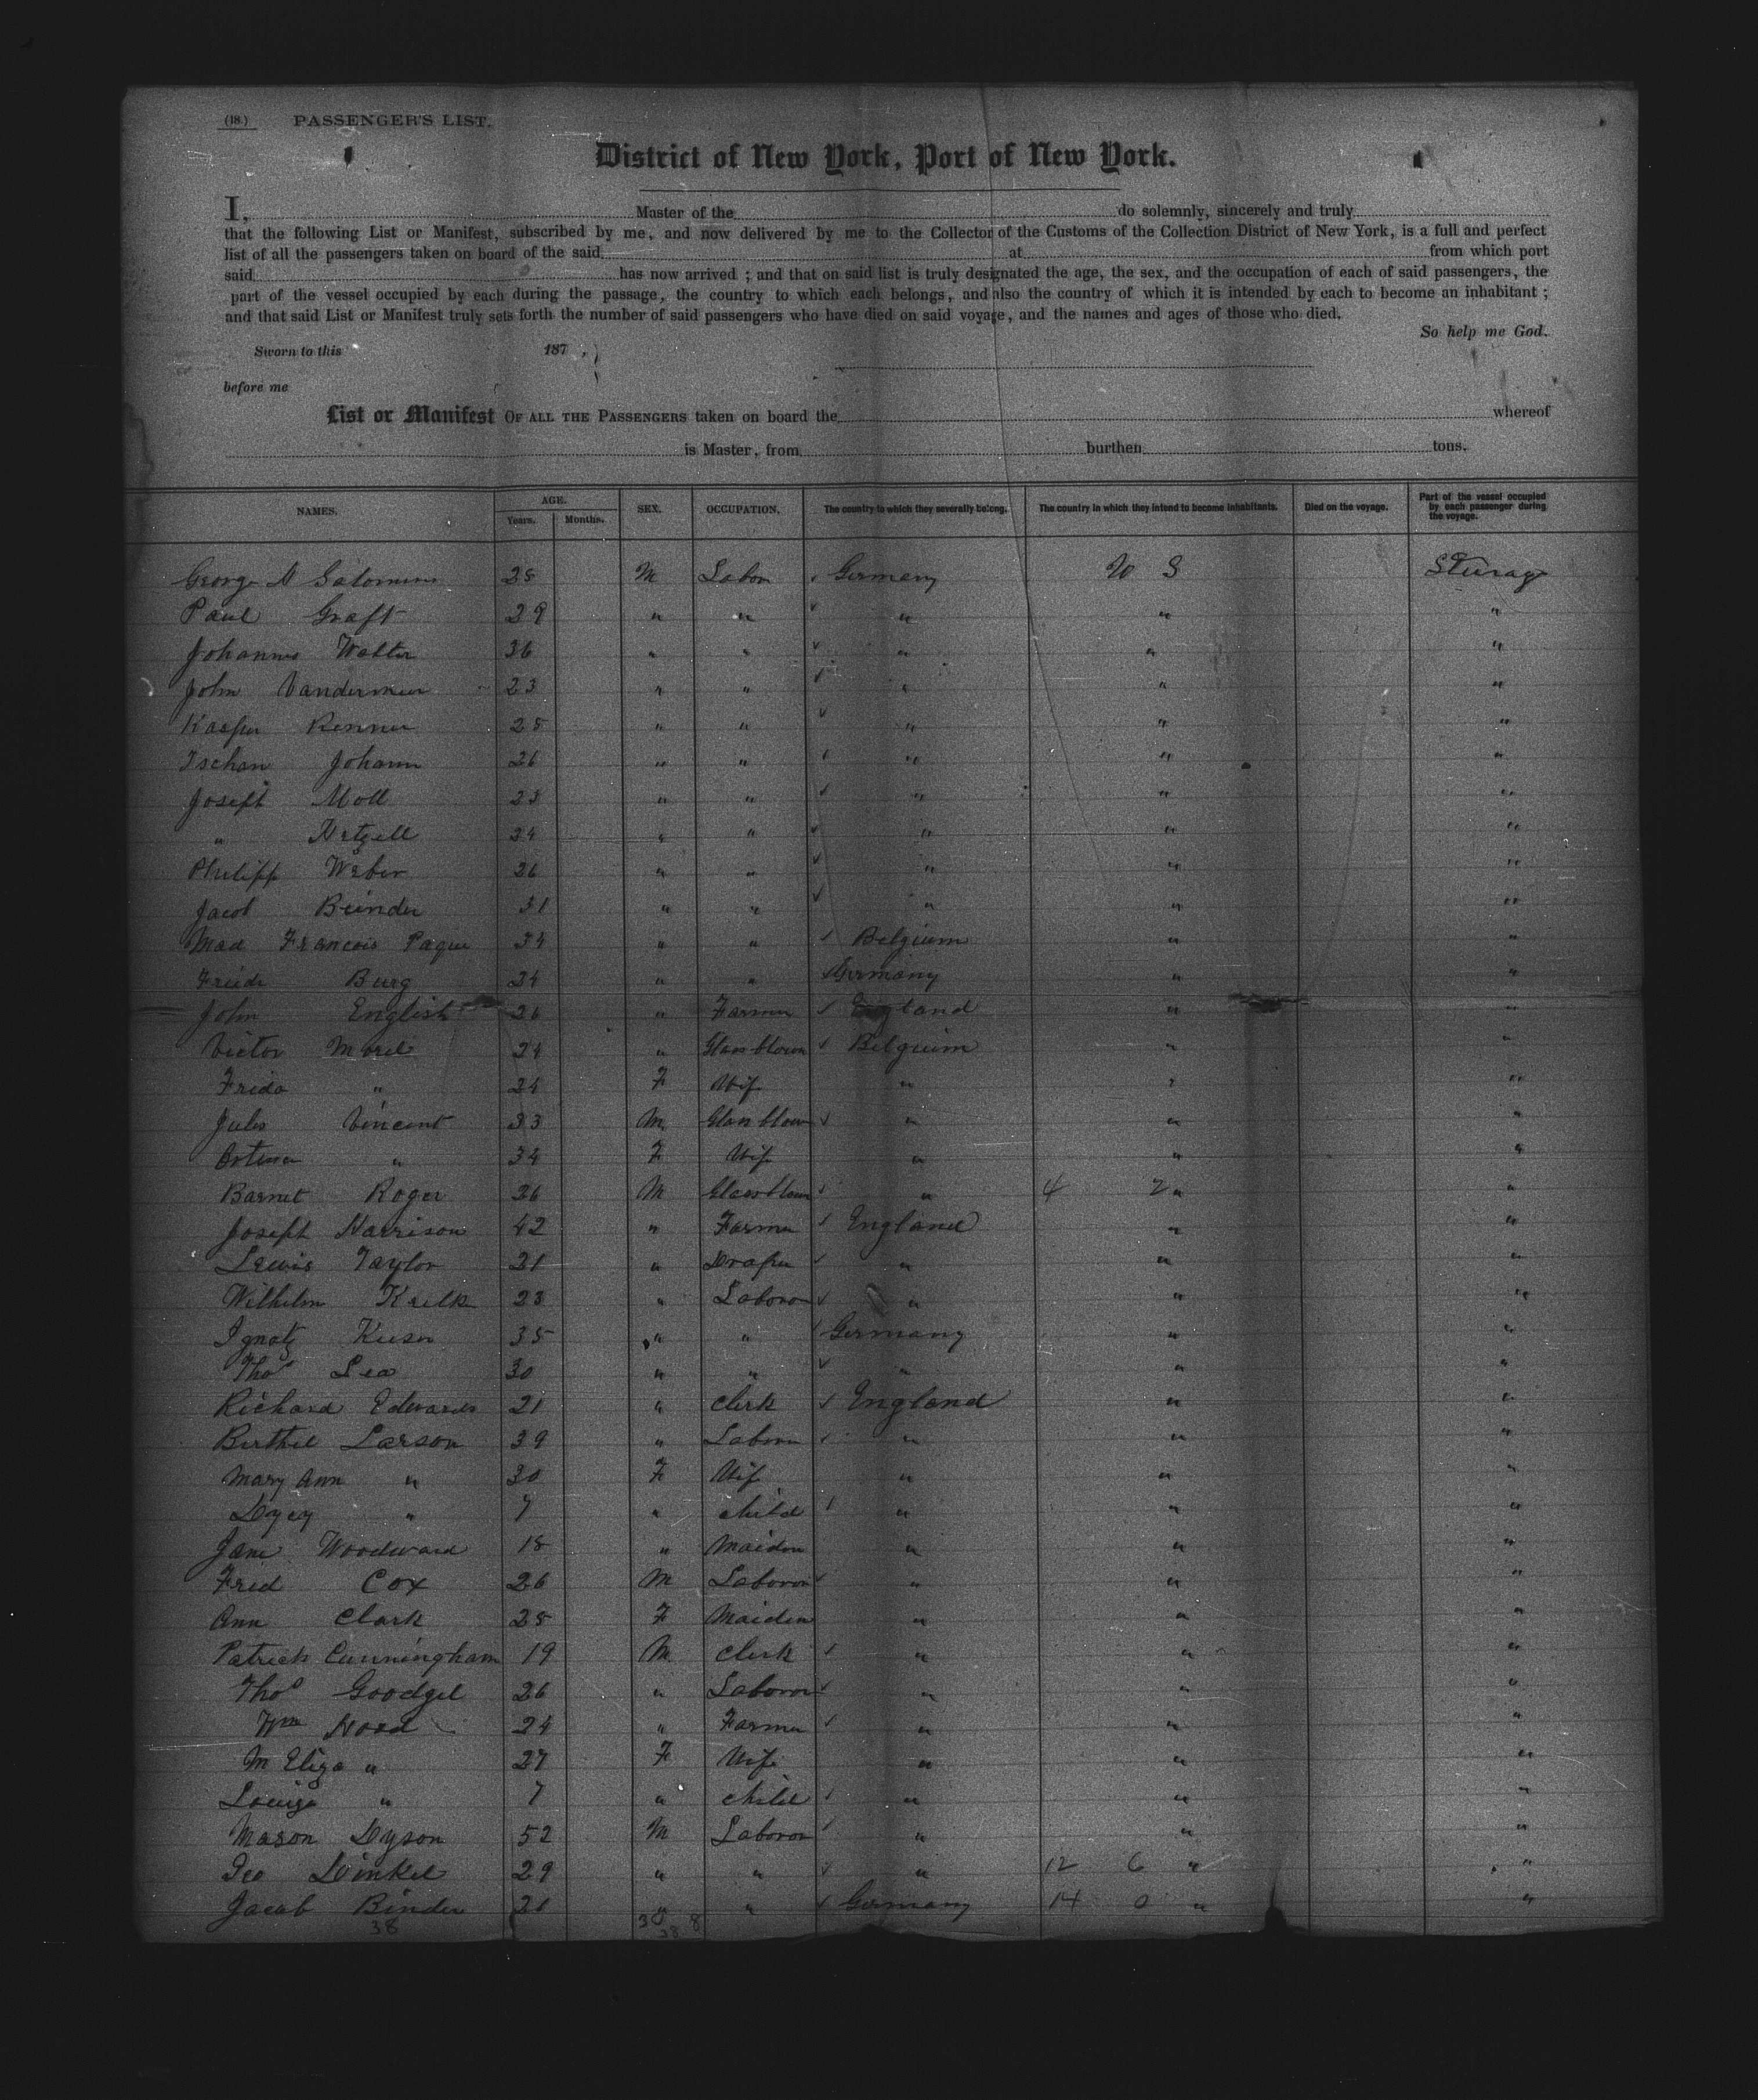 (18.) PASSENGER'S LIST.
District of New York, Port of New York.
I, Master of the do solemnly, sincerely and truly
that the following List or Manifest, subscribed by me, and now delivered by me to the Collector of the Customs of the Collection District of New York, is a full and perfect
list of all the passengers taken on board of the said at from which port
said has now arrived ; and that on said list is truly designated the age, the sex, and the occupation of each of said passengers, the
part of the vessel occupied by each during the passage, the country to which each belongs, and also the country of which it is intended by each to become an inhabitant ;
and that said List or Manifest truly sets forth the number of said passengers who have died on said voyage, and the names and ages of those who died.
So help me God.
Sworn to this 187 ,
before me
List or Manifest OF ALL THE PASSENGERS taken on board the whereof
is Master, from burthen tons.
NAMES. AGE. Years. Months. SEX. OCCUPATION. The country to which they severally belong. The country in which they intend to become inhabitants. Died on the voyage. Part of the vessel occupied by each passenger during the voyage.
George 28 M Labor Germany U S
Paul Graft 29 " " " " "
Johannes Walter 36 " " " " "
John 23 " " " " "
Renner 28 " " " " "
Johann 26 " " " " "
Joseph Moll 23 " " " " "
" 24 " " " " "
Philipp Weber 26 " " " " "
Jacob 31 " " " " "
Mad Francois Paque 34 " " Belgium " "
Burg 24 " " Germany " "
John English 26 " Farmer England " "
Victor Morel 24 " Glass blower Belgium " "
Frida " 24 F Wife " " "
Jules Vincent 33 M Glass blower " " "
" 34 F Wife " " "
Barnet Roger 26 M Glass blower " 4 2 " "
Joseph Harrison 42 " Farmer England " "
Lewis Taylor 21 " Draper " " "
Wilhelm 23 " Laborer " " "
Ignatz 35 " " Germany " "
Thos Lea 30 " " " " "
Richard Edwards 21 " Clerk England " "
Larson 39 " Laborer " " "
Mary Ann " 30 F Wife " " "
" 7 " child " " "
Jane Woodward 18 " Maiden " " "
Fred Cox 26 M Laborer " " "
Ann Clark 28 F Maiden " " "
Patrick Cunningham 19 M Clerk " " "
Thos Goodgel 26 " Laborer " " "
Wm 24 " Farmer " " "
M Eliza " 27 F Wife " " "
Louiza " 7 " child " " "
Mason Dyson 52 M Laborer " " "
Geo Dinkel 29 " " " 12 6 " "
Jacob Binder 26 " " Germany 14 0 " "
38 30 8
38